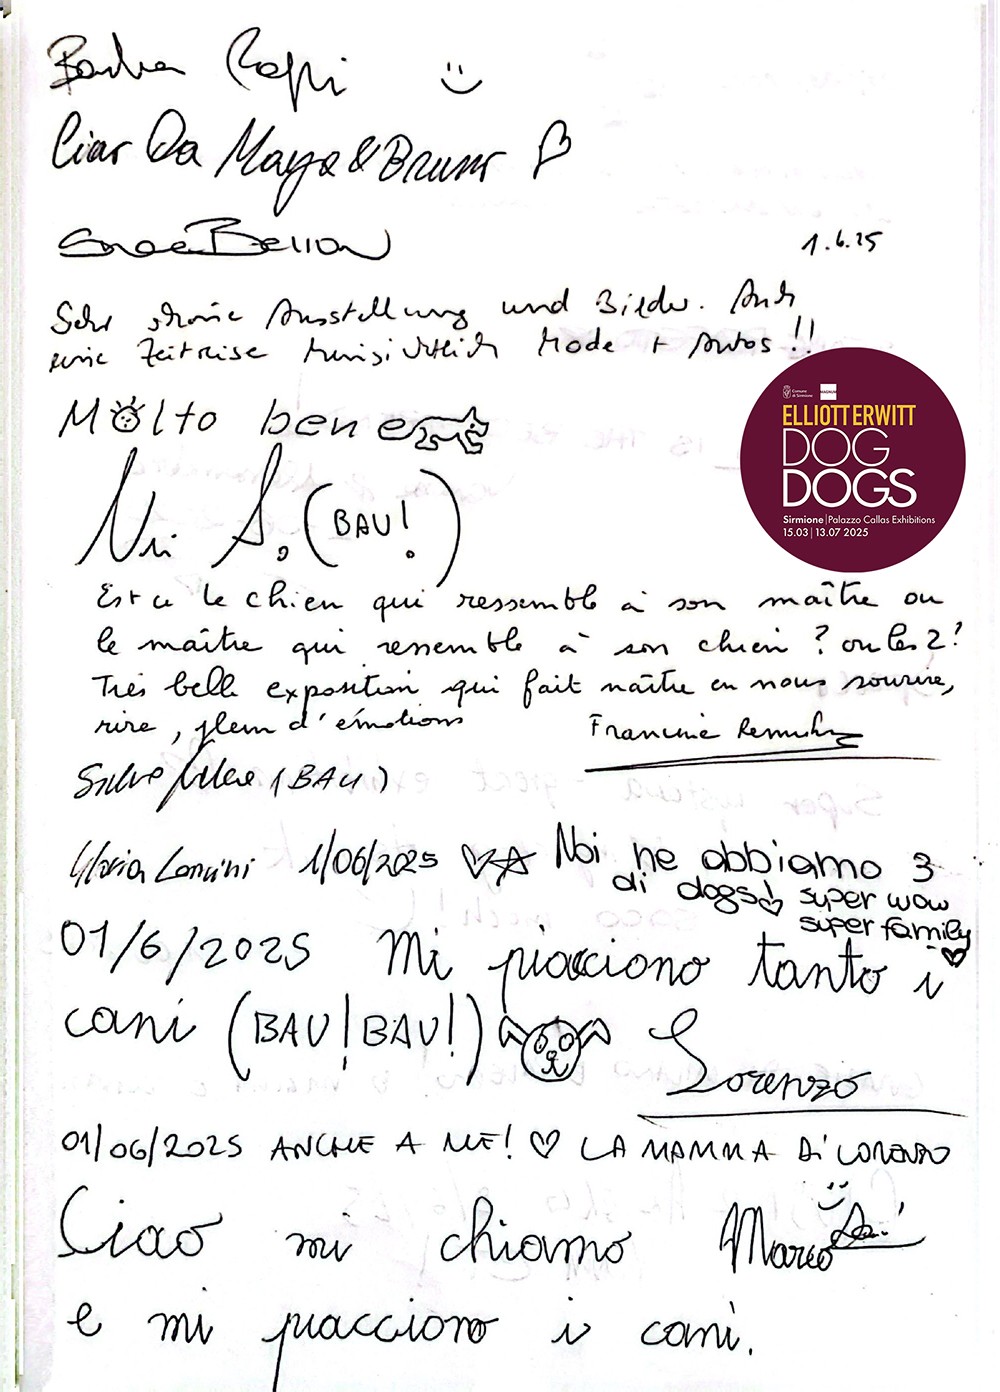 Ciao Da Maya & Bruno
1.6.25
Sehr schöne Ausstellung und Bilder. Auch
eine Zeitreise hinsichtlich Mode + Autos!!
Molto bene
(BAU!)
Comune
di Sirmione
MAGNUM
ELLIOTT ERWITT
DOG
DOGS
Sirmione | Palazzo Callas Exhibitions
15.03 | 13.07 2025
Est ce le chien qui ressemble à son maître ou
le maître qui ressemble à son chien ? ou les 2 ?
Très belle exposition qui fait naître en nous sourire,
rire, plein d'émotions
Francine
(BAU)
1/06/2025
Noi ne abbiamo 3
di dogs! super wow
super family
01/6/2025 Mi piacciono tanto i
cani (BAU! BAU!)
Lorenzo
01/06/2025 ANCHE A ME! LA MAMMA Di LORENZO
Ciao mi chiamo Marco
e mi piacciono i cani.